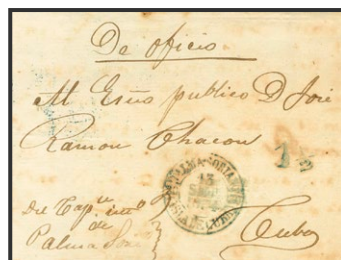 De oficio
Al Esño publico D José
Ramon Chacon
PALMA SORIANO
Del Cap.n
de
Palma
Cuba